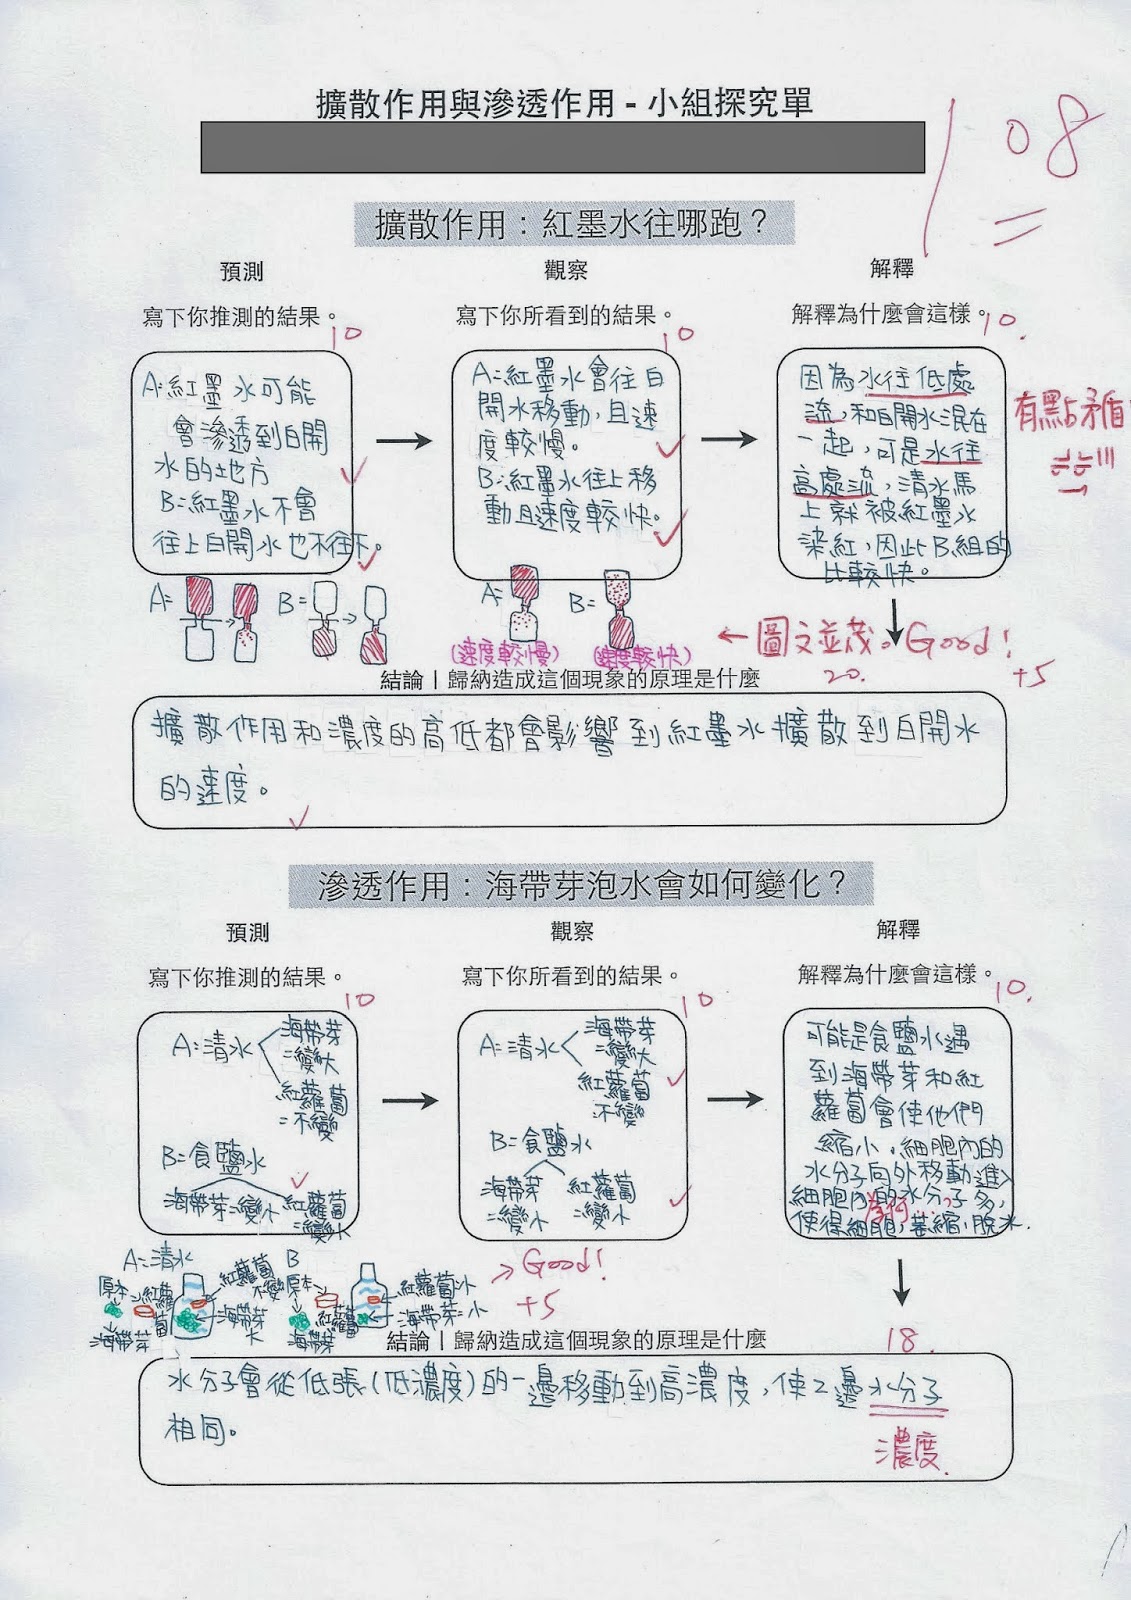 擴散作用與滲透作用 - 小組探究單
108
擴散作用：紅墨水往哪跑？
預測
寫下你推測的結果。
10
A:紅墨水可能
會滲透到白開
水的地方
B:紅墨水不會
往上白開水也不往下。
A=
B=
觀察
寫下你所看到的結果。
10
A:紅墨水會往白
開水移動,且速
度較慢。
B:紅墨水往上移
動且速度較快。
A=
B=
(速度較慢)
(速度較快)
解釋
解釋為什麼會這樣。
10.
因為水往低處
流,和白開水混在
一起,可是水往
高處流,清水馬
上就被紅墨水
染紅,因此B組的
比較快。
有點矛盾
←圖文並茂。Good!
20.
+5
結論 | 歸納造成這個現象的原理是什麼
擴散作用和濃度的高低都會影響到紅墨水擴散到白開水
的速度。
滲透作用：海帶芽泡水會如何變化？
預測
寫下你推測的結果。
10
A=清水
海帶芽
=變大
紅蘿蔔
=不變
B=食鹽水
海帶芽=變小
紅蘿蔔
=變小
A=清水
原本
紅蘿蔔
海帶芽
紅蘿蔔
不變
海帶芽
大
B
原本
紅蘿蔔
海帶芽
紅蘿蔔=小
海帶芽=小
觀察
寫下你所看到的結果。
10
A=清水
海帶芽
=變大
紅蘿蔔
=不變
B=食鹽水
海帶芽
=變小
紅蘿蔔
=變小
→Good!
+5
解釋
解釋為什麼會這樣。
10.
可能是食鹽水遇
到海帶芽和紅
蘿蔔會使他們
縮小,細胞內的
水分子向外移動進入
細胞內的水分子多,
使得細胞,萎縮,脫水.
為何
18.
結論 | 歸納造成這個現象的原理是什麼
水分子會從低張(低濃度)的一邊移動到高濃度,使2邊水分子
相同。
濃度